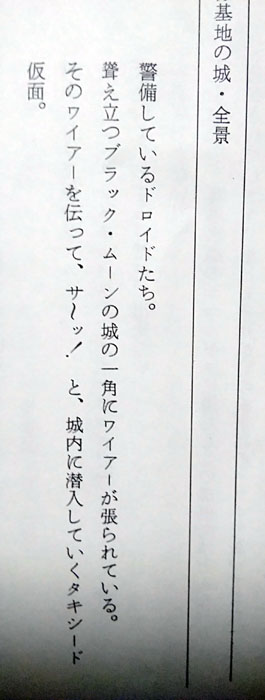 基地の城・全景
警備しているドロイドたち。
聳え立つブラック・ムーンの城の一角にワイアーが張られている。
そのワイアーを伝って、サ〜ッ！と、城内に潜入していくタキシード
仮面。